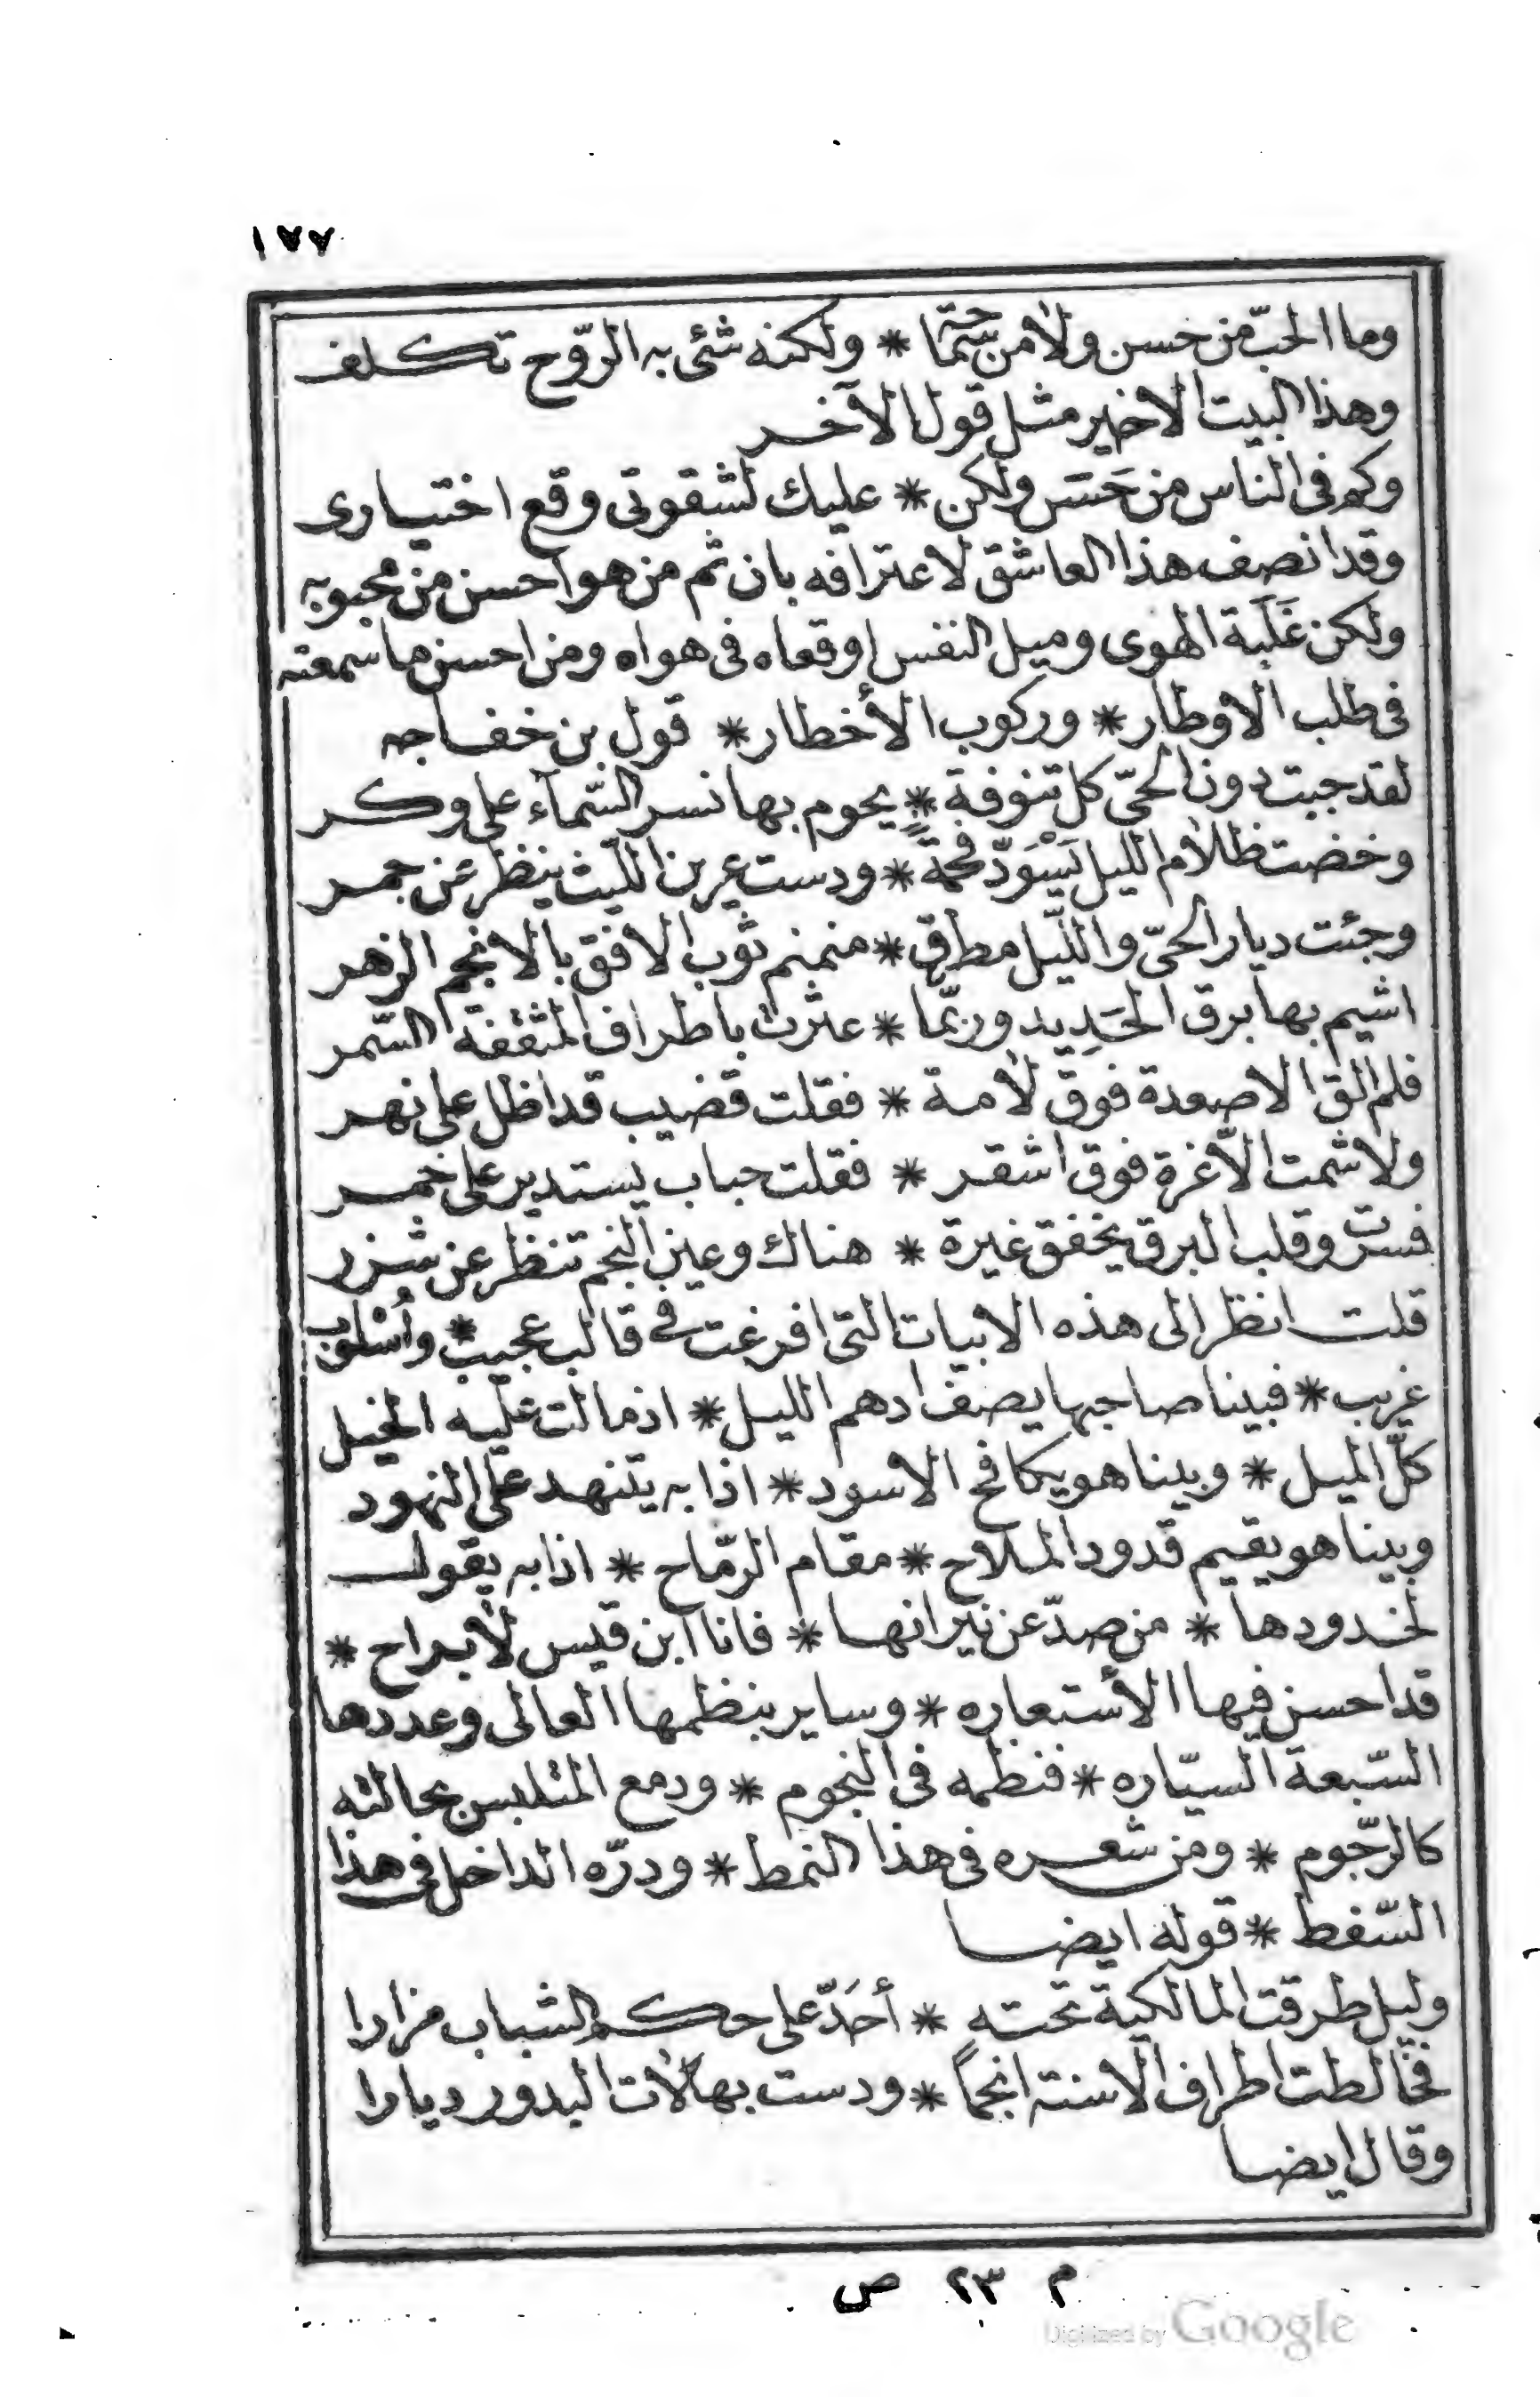 ١٧٧
وما الحبّ من حسن ولا من سماحتم * ولكنه شئ به الرّوح تكلف
وهذا البيت الاخير مثل قول الآخر
وكم فى الناس من حَسَن ولكن * عليك لشقوتى وقع اختيارى
وقد انصف هذا العاشق لاعترافه بان ثم من هو احسن من محبوبه
ولكن غَلَبَة الهوى وميل النفس اوقعاه فى هواه ومن احسن ما سمعته
فى طلب الاوطار * وركوب الأخطار * قول بن خفاجه
لقد جبت دون الحىّ كل تنوفة * يحوم بها نسر السّمآء على وكر
وخضت ظلام الليل يَسْوَدّ فحمةً * ودست عرين اللّيث ينظر عن جمر
وجئت ديار الحىّ واللّيل مطرق * منمنم ثوب الافق بالانجم الزهر
اشيم بها برق الحَدِيد وربّما * عثرت باطراف المثقفة السّمر
فلم الق الا صعدة فوق لأمة * فقلت قضيب قد اظل على نهر
ولا شمت الّا غرة فوق اشقر * فقلت حباب يستدير على خمر
فسرت وقلب البرق يخفق غيرة * هناك وعين النجم تنظر عن شزر
قلت انظر الى هذه الابيات التى افرغت فى قالب عجيب * واُسْلوب
غريب * فبينا صاحبها يصف ادهم الليل * اذ مالت عليه الخيل
كلّ الميل * وبينا هو يكافح الاسود * اذا به يتنهد على النهود
وبينا هو يقيم قدود الملاح * مقام الرّماح * اذا به يقول
لخدودها * من صدّ عن نيرانها * فانا ابن قيس لأبراح *
قد احسن فيها الأستعاره * وساير بنظمها العالى وعددها
السّبعة السيّاره * فنظمه فى النجوم * ودمع المتلبس بحالته
كالرّجوم * ومن شعره فى هذا النمط * ودرّه الداخل فى هذا
السّفط * قوله ايضا
وليل طرقت المالكية تحته * أجَدّ على حكم الشباب مزارا
فخالطت اطراف الاسنة انجماً * ودست بهالات البدور ديارا
وقال ايضا
م ٢٣ ص
Digitized by Google